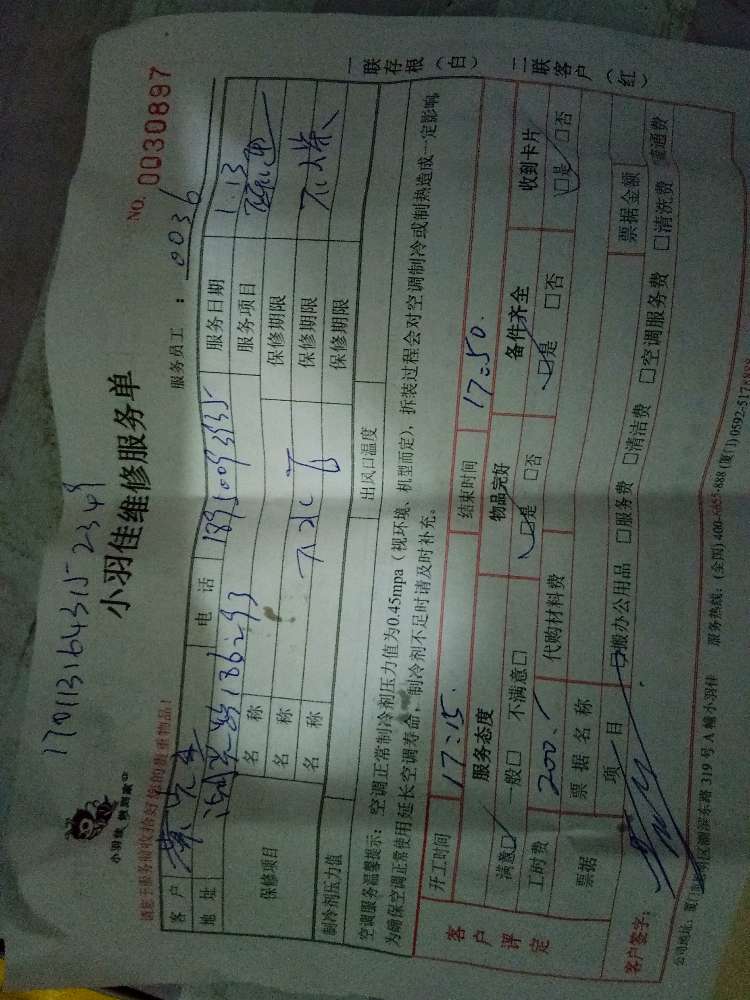 1701131643152349
小羽佳维修服务单
NO. 0030897
小羽佳 做到家
服务员工: 0036
请您于服务前收拾好您的贵重物品!
客户 电话 18950093935 服务日期 1.13
地址 186-293 服务项目
保修项目 名称 保修期限
名称 保修期限
名称 保修期限
制冷剂压力值 出风口温度
空调服务温馨提示: 空调正常制冷剂压力值为0.45mpa(视环境、机型而定),拆装过程会对空调制冷或制热造成一定影响
为确保空调正常使用延长空调寿命,制冷剂不足时请及时补充。
开工时间 17:15. 结束时间 17:50.
客户评定
服务态度 物品完好 备件齐全 收到卡片
满意☑ 一般□ 不满意□ ☑是 □否 ☑是 □否 ☑是 □否
工时费 200. 代购材料费
票据 票据名称 票据金额
项目 □搬办公用品 □服务费 □清洁费 □空调服务费 □清洗费 疏通费
客户签字:
319号A幢小羽佳 服务热线:(全国)400-6655-888 (厦门)0592-517
一联存根(白) 二联客户(红)